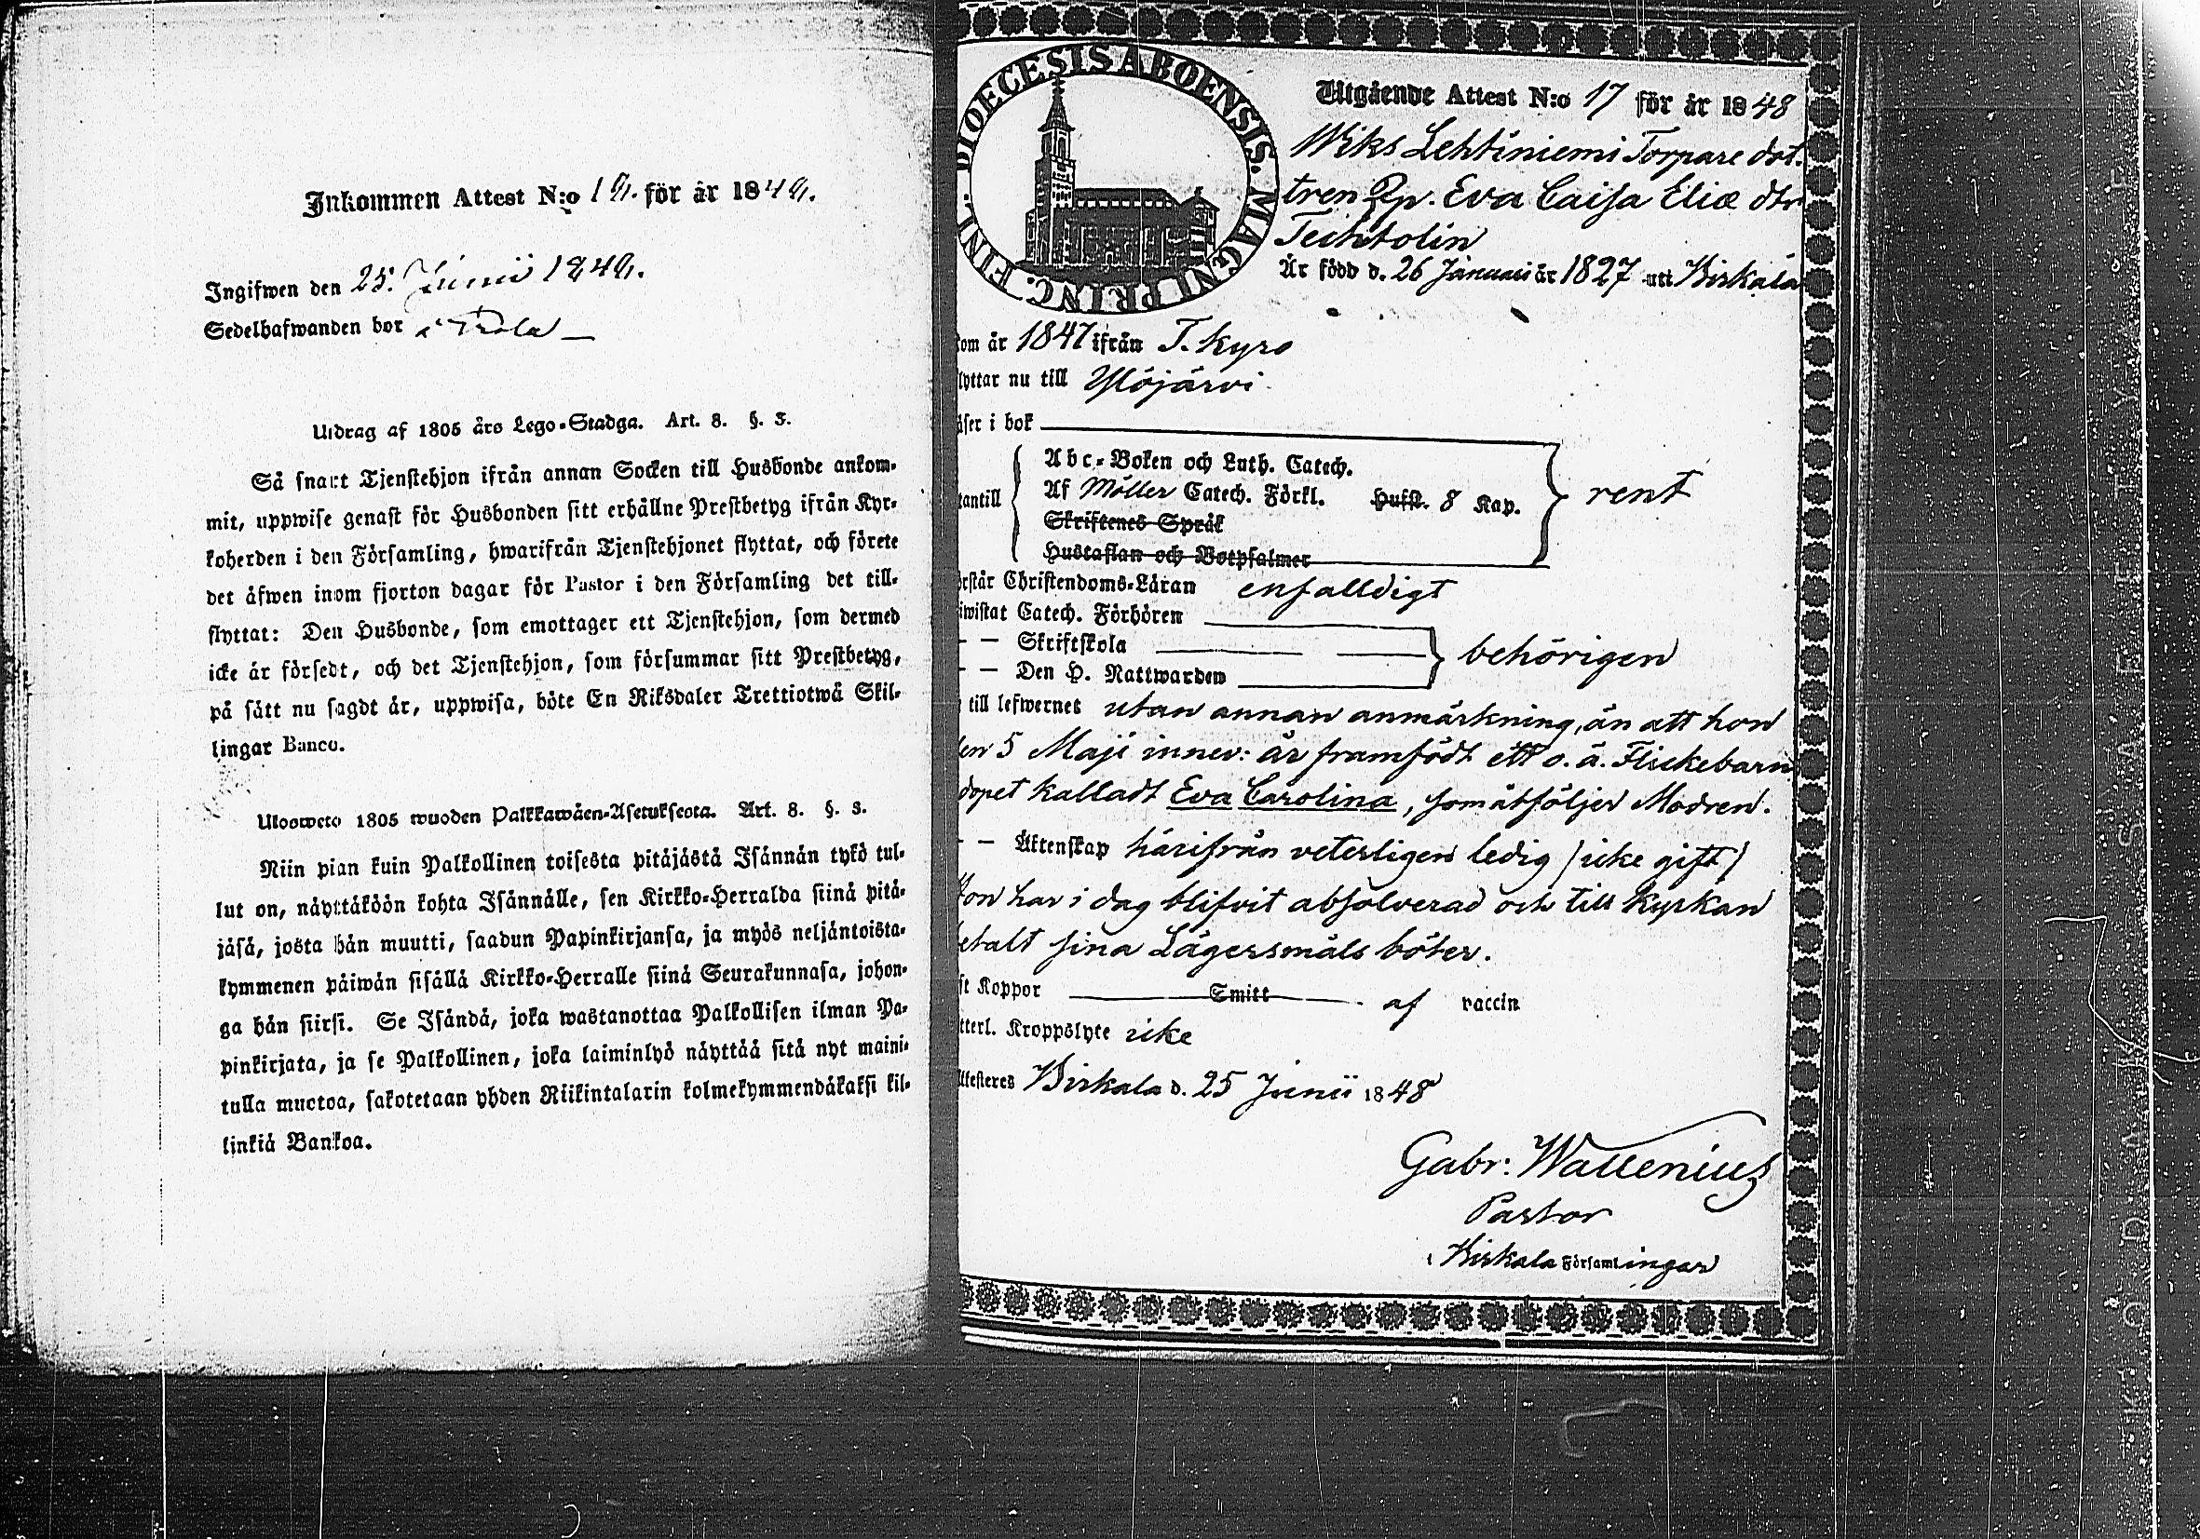 Inkommen Attest N:o 19. för år 1849.
Ingifwen den 25. Junii 1849.
Sedelhafwanden bor i
Utdrag af 1805 års Lego-Stadga. Art. 8. §. 3.
Så snart Tjenstehjon ifrån annan Socken till Husbonde ankom-
mit, uppwise genast för Husbonden sitt erhållne Prestbetyg ifrån Kyr-
koherden i den Församling, hwarifrån Tjenstehjonet flyttat, och förete
det äfwen inom fjorton dagar för Pastor i den Församling det till-
flyttat: Den Husbonde, som emottager ett Tjenstehjon, som dermed
icke är försedt, och det Tjenstehjon, som försummar sitt Prestbetyg,
på sätt nu sagdt är, uppwisa, böte En Riksdaler Trettiotwå Skil-
lingar Banco.
Ulosweto 1805 wuoden Palkkawäen-Asetuksesta. Art. 8. §. 3.
Niin pian kuin Palkollinen toisesta pitäjästä Isännän tykö tul-
lut on, näyttäköön kohta Isännälle, sen Kirkko-Herralda siinä pitä-
jäsä, josta hän muutti, saadun Papinkirjansa, ja myös neljäntoista-
kymmenen päiwän sisällä Kirkko-Herralle siinä Seurakunnasa, johon-
ga hän siirsi. Se Isändä, joka wastanottaa Palkollisen ilman Pa-
pinkirjata, ja se Palkollinen, joka laiminlyö näyttää sitä nyt maini-
tulla muotoa, sakotetaan yhden Riikintalarin kolmekymmendäkaksi kil-
linkiä Bankoa.
DIOECESIS ABOENSIS. MAGNI PRINC. FINL.
Utgående Attest N:o 17 för år 1848
Wiks Lehtiniemi Torpare dot-
tren Qp. Eva Caisa Eliæ dtr
Teihtolin
Är född d. 26 Januari år 1827 uti Birkala
kom år 1847 ifrån T. Kyro
flyttar nu till Ylöjärvi
läser i bok
utantill
Abc-Boken och Luth. Catech.
Af Möller Catech. Förkl. Hufst. 8 Kap. rent
Skriftenes Språk
Hustaflan och Botpsalmer
förstår Christendoms-Läran enfalldigt
bewistat Catech. Förhören
— — Skriftskola behörigen
— — Den H. Nattwarden
till lefwernet utan annan anmärkning, än att hon
den 5 Maji innev: är framfödt ett o. ä. Flickebarn
i dopet kalladt Eva Carolina, som åtföljer Modren.
— — Äktenskap härifrån veterligen ledig (icke gift)
Hon har i dag blifvit absolverad och till Kyrkan
betalt sina Lägersmåls böter.
haft Koppor Smitt af vaccin
ytterl. Kroppslyte icke
Attesteres Birkala d. 25 Junii 1848
Gabr: Wallenius
Pastor
i Birkala Församlingar